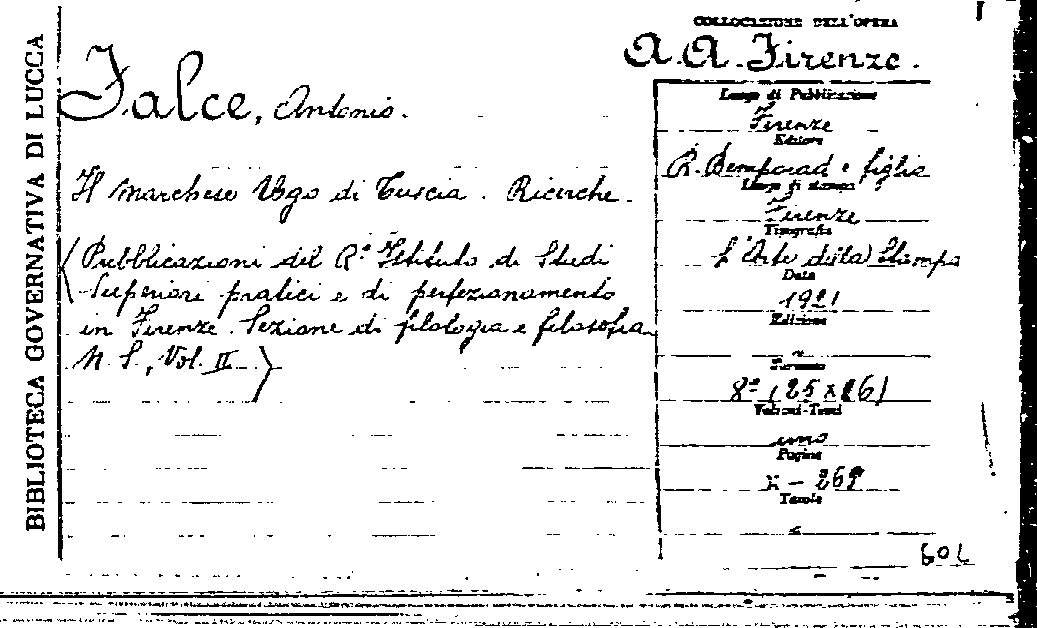 BIBLIOTECA GOVERNATIVA DI LUCCA
Falce, Antonio.
Il Marchese Ugo di Tuscia. Ricerche.
(Pubblicazioni del R° Istituto di Studi
Superiori pratici e di perfezionamento
in Firenze. Sezione di filologia e filosofia
N. S., Vol. II)
COLLOCAZIONE DELL'OPERA
A. A. Firenze.
Luogo di Pubblicazione
Firenze
Editore
R. Bemporad e figlio
Luogo di stampa
Firenze
Tipografia
L'Arte della Stampa
Data
1921
Edizione
Formato
8° (25 x 16)
Volumi-Tomi
uno
Pagine
Tavole